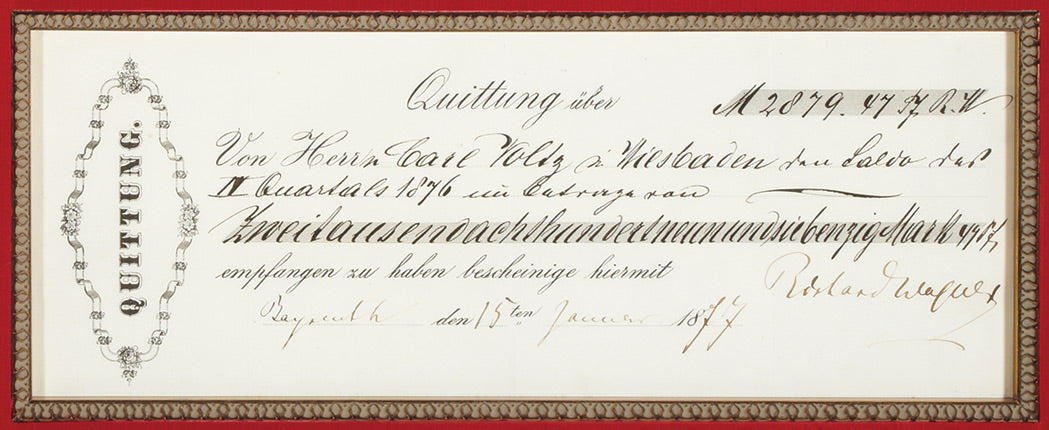 QUITTUNG.
Quittung über M 2879. 47 Pf. R. W.
Von Herrn Carl Voltz in Wiesbaden den Saldo des
IV Quartals 1876 im Betrage von
Zweitausendachthundertneunundsiebenzig Mark 47 Pf.
empfangen zu haben bescheinige hiermit
Richard Wagner
Bayreuth den 15ten Januar 1877